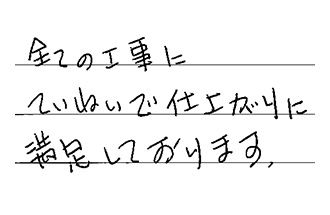 全ての工事に
ていねいで仕上がりに
満足しております。